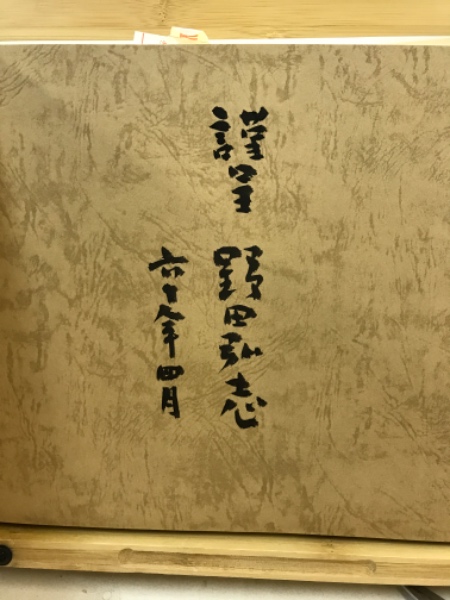 謹呈 野田弘志
六十八年四月